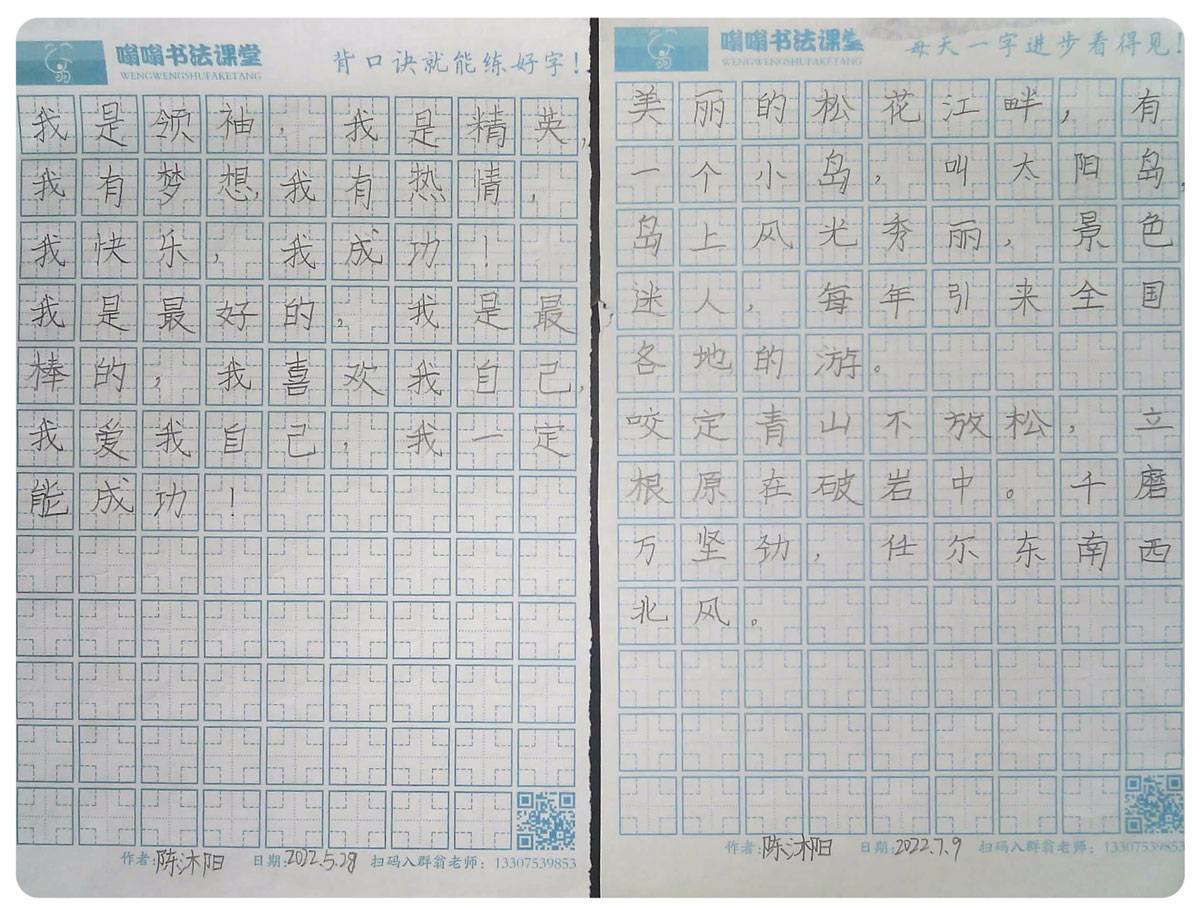 嗡嗡书法课堂
WENGWENGSHUFAKETANG
背口诀就能练好字!
我是领袖，我是精英，
我有梦想，我有热情，
我快乐，我成功！
我是最好的，我是最
棒的，我喜欢我自己，
我爱我自己，我一定
能成功！
作者:陈沐阳 日期:2022.5.28 扫码入群翁老师：13307539853
嗡嗡书法课堂
WENGWENGSHUFAKETANG
每天一字进步看得见!
美丽的松花江畔，有
一个小岛，叫太阳岛，
岛上风光秀丽，景色
迷人，每年引来全国
各地的游。
咬定青山不放松，立
根原在破岩中。千磨
万坚劲，任尔东南西
北风。
作者:陈沐阳 日期:2022.7.9 扫码入群翁老师：13307539853